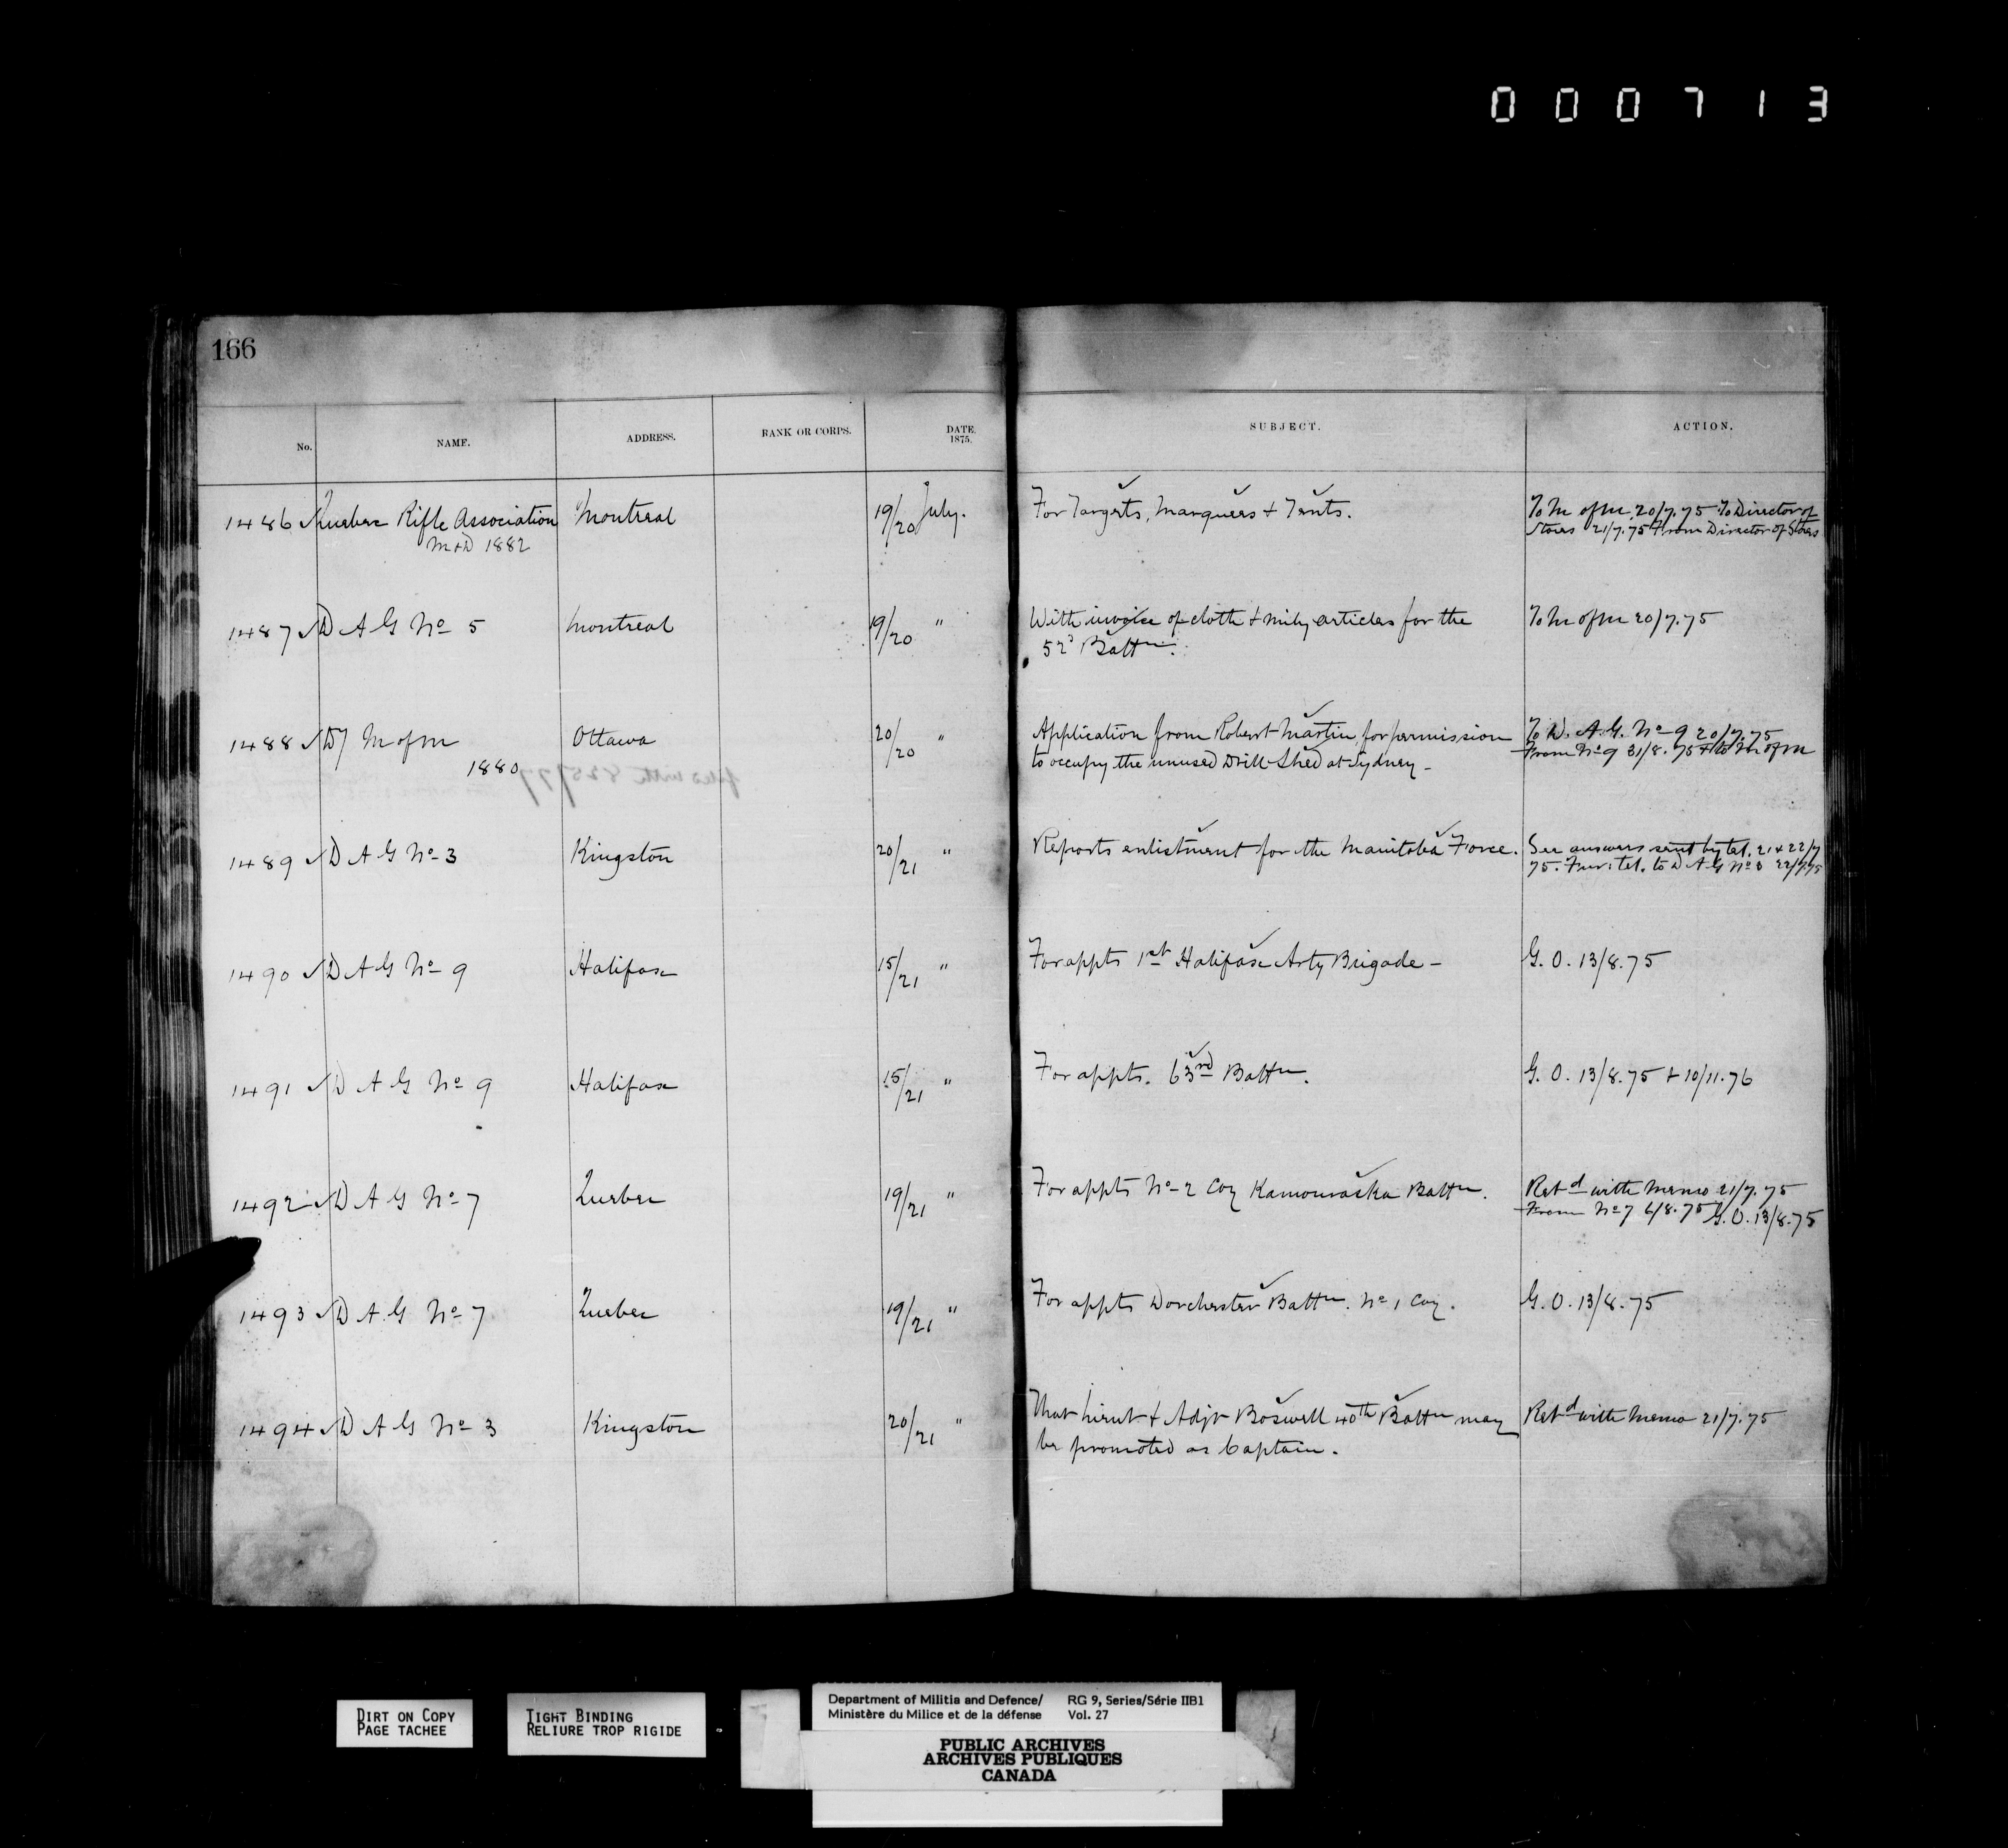 000713
166
No. NAME. ADDRESS. RANK OR CORPS. DATE. 1875. SUBJECT. ACTION.
1486 Quebec Rifle Association Montreal 19/20 July. For Targets, Marquees & Tents. To M of M 20/7.75 To Director of
M&D 1882 Stores 21/7.75 From Director of Stores
1487 D A G No 5 Montreal 19/20 " With invoice of cloth & mily articles for the To M of M 20/7.75
52d Battn.
1488 Dy M of M Ottawa 20/20 " Application from Robert Martin for permission To D. A. G. No 9 20/7.75
1880 to occupy the unused Drill Shed at Sydney - From No 9 31/8.75 & to M of M
filed with 825/77
1489 D A G No 3 Kingston 20/21 " Reports enlistment for the Manitoba Force. See answers sent by tel. 21 & 22/7
75. Fur: tel. to D A G No 3 22/7.75
1490 D A G No 9 Halifax 15/21 " For appts 1st Halifax Arty Brigade - G. O. 13/8.75
1491 D A G No 9 Halifax 15/21 " For appts. 63rd Battn. G. O. 13/8.75 & 10/11.76
1492 D A G No 7 Quebec 19/21 " For appts No 2 Coy Kamouraska Battn. Retd with memo 21/7.75
From No 7 6/8.75 G. O. 13/8.75
1493 D A G No 7 Quebec 19/21 " For appts Dorchester Battn. No 1 Coy. G. O. 13/8.75
1494 D A G No 3 Kingston 20/21 " That Lieut & Adjt Boswell 40th Battn may Retd with Memo 21/7.75
be promoted as Captain.
DIRT ON COPY
PAGE TACHEE
TIGHT BINDING
RELIURE TROP RIGIDE
Department of Militia and Defence/ RG 9, Series/Série IIB1
Ministère du Milice et de la défense Vol. 27
PUBLIC ARCHIVES
ARCHIVES PUBLIQUES
CANADA